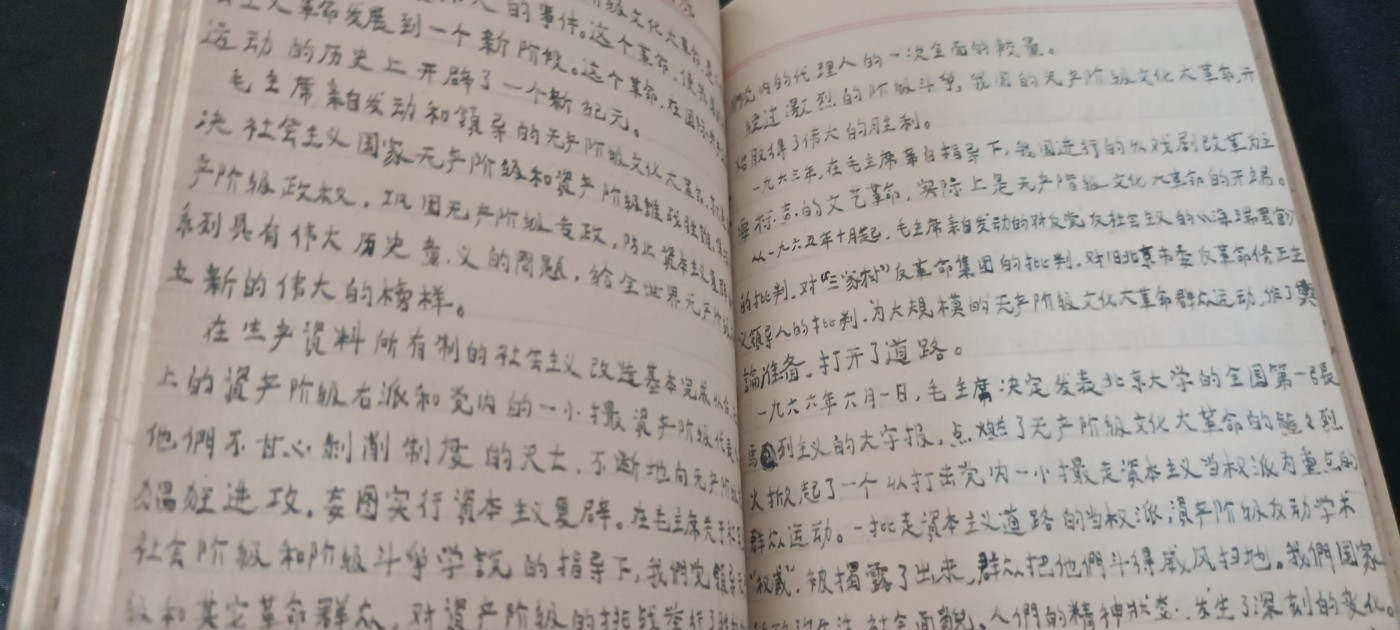 级文化大革命是
人的事件。这个革命，使
主义革命发展到一个新阶段。这个革命，在国际共产
运动的历史上开辟了一个新纪元。
毛主席亲自发动和領导的无产阶级文化大革命，
决社会主义国家无产阶级和資产阶级
产阶级政权，巩固无产阶级专政，防止資本主义复辟
系列具有伟大历史意义的問題，給全世界无产阶级
立新的伟大的榜样。
在生产資料所有制的社会主义改造基本完成以后，
上的資产阶级右派和党内的一小撮資产阶级代表
他們不甘心剝削制度的灭亡，不断地向无产阶级
猖狂进攻，妄图实行資本主义复辟。在毛主席关于
社会阶级和阶级斗争学說的指导下，我們党領导
级和其它革命群众，对資产阶级的挑战举行了
党内的代理人的一次全面的較量。
经过激烈的阶级斗争，我国的无产阶级文化大革命，开
始取得了伟大的胜利。
一九六三年，在毛主席亲自指导下，我国进行的以戏剧改革为主
要标志的文艺革命，实际上是无产階级文化大革命的开端。
从一九六五年十月起，毛主席亲自发动的对反党反社会主义的《海瑞罢官》
的批判，对“三家村”反革命集团的批判，对旧北京市委反革命修正主
义領导人的批判，为大規模的无产阶级文化大革命群众运动，作了輿
論准备，打开了道路。
一九六六年六月一日，毛主席决定发表北京大学的全国第一張
馬列主义的大字报，点燃了无产阶级文化大革命的熊々烈
火，掀起了一个以打击党内一小撮走資本主义当权派为重点的
群众运动。一批走資本主义道路的当权派，資产阶级反动学术
“权威”，被揭露了出来，群众把他們斗得威风扫地。我們国家
的政治生活，社会面貌，人們的精神状态，发生了深刻的变化。